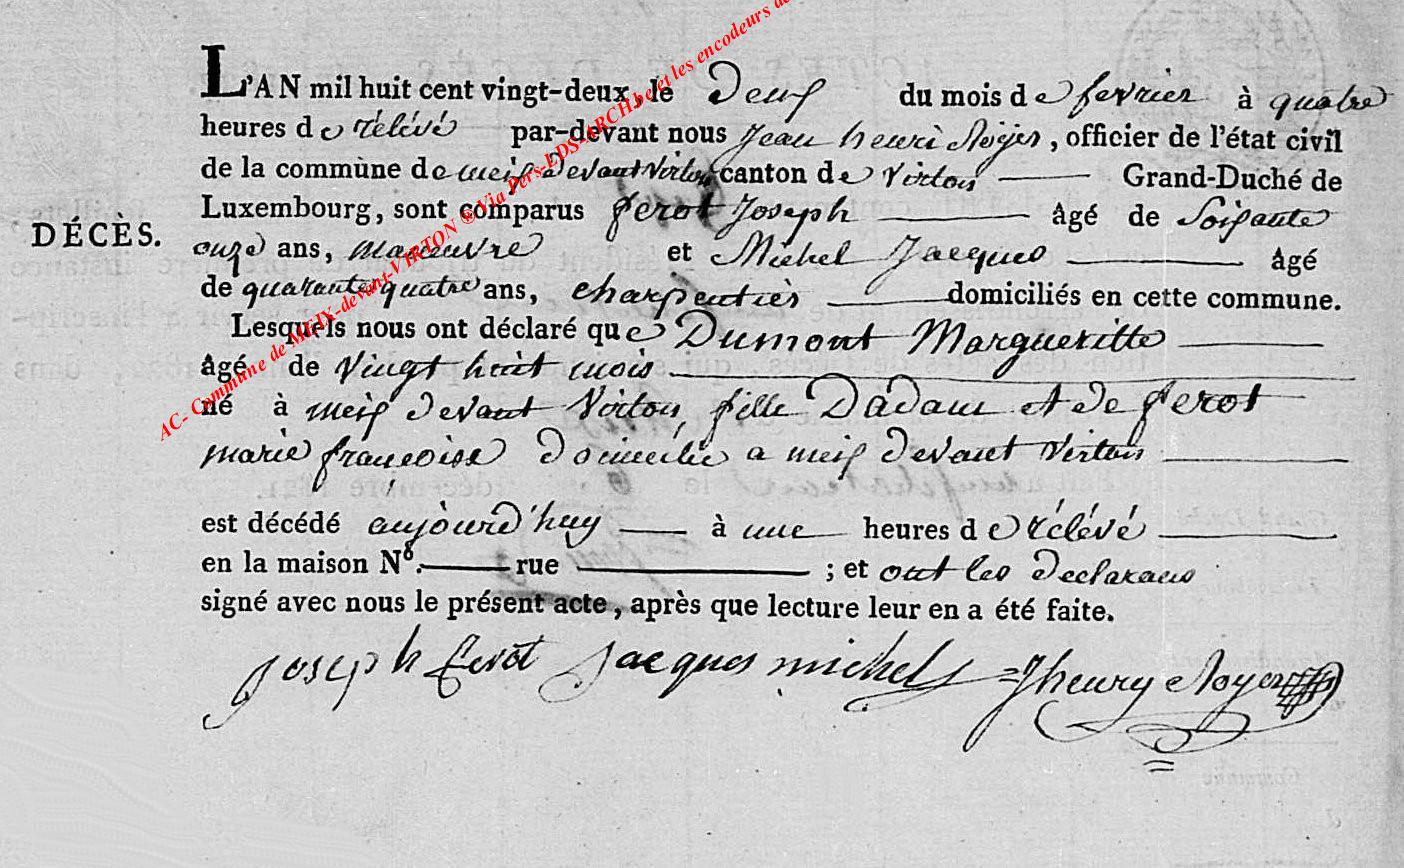 L'AN mil huit cent vingt-deux, le Deux du mois de fevrier à quatre
heures de rélévé par-devant nous Jean henri Noyer, officier de l'état civil
de la commune de meix devant Virton canton de Virton Grand-Duché de
Luxembourg, sont comparus ferot Joseph âgé de Soixante
DÉCÈS.
onze ans, maneuvre et Michel Jacques âgé
de quarante quatre ans, charpentiér domiciliés en cette commune.
Lesquels nous ont déclaré que Dumont Margueritte
âgé de Vingt huit mois
né à meix devant Virton, fille Dadam et de ferot
marie françoise domicilié a meix devant Virton
est décédé aujourd'huy à une heures de rélévé
en la maison N.o rue ; et ont les declarans
signé avec nous le présent acte, après que lecture leur en a été faite.
Joseph ferot Jacques michel Jhenry Noyer
AC- Commune de MEIX-devant-VIRTON ® Via Pers-LDS-ARCH.be et les encodeurs de